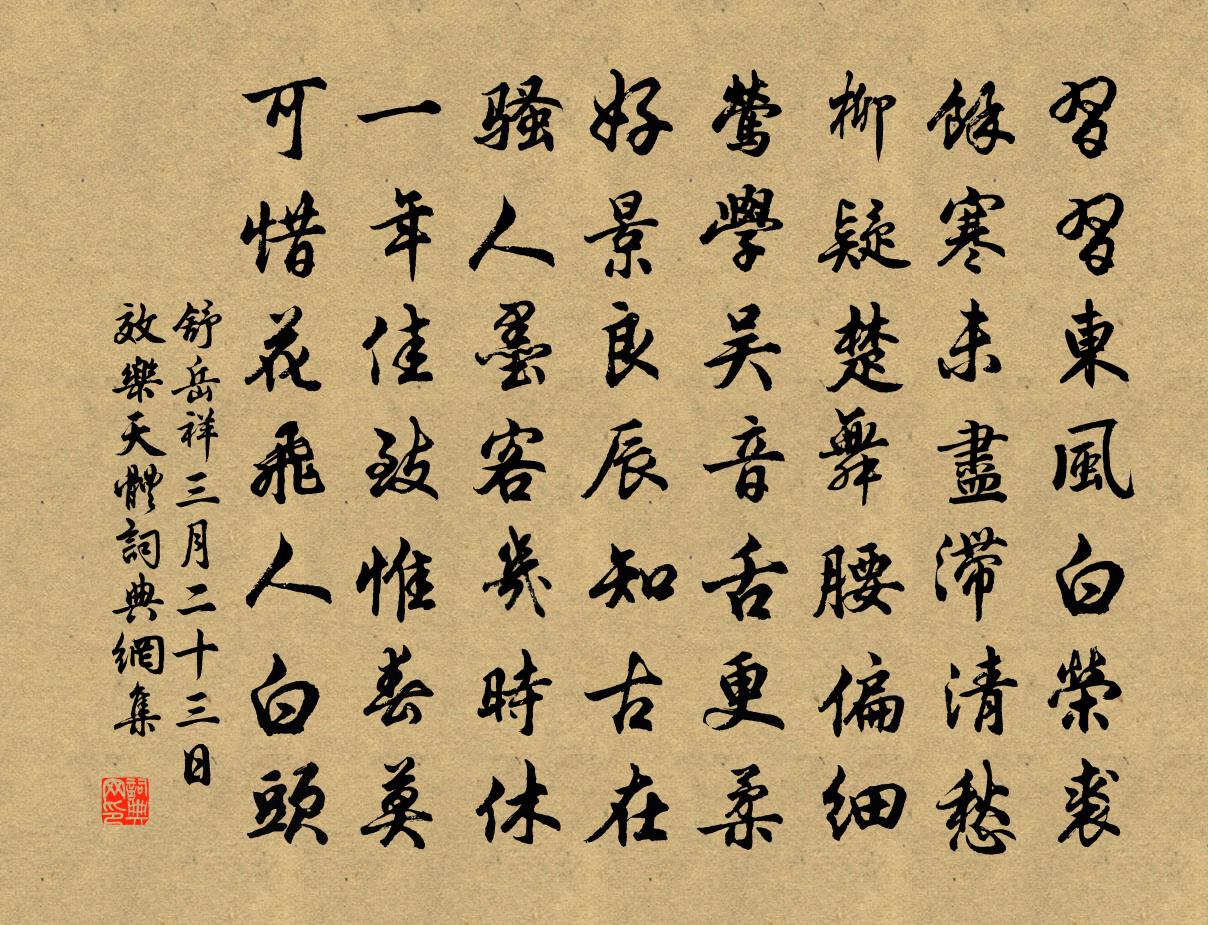 習習東風白榮裘
餘寒未盡滯清愁
柳疑楚舞腰偏細
鶯學吴音舌更柔
好景良辰知古在
騷人墨客幾時休
一年佳致惟春莫
可惜花飛人白頭
舒岳祥三月二十三日
效樂天體詞典網集
詞典
网印